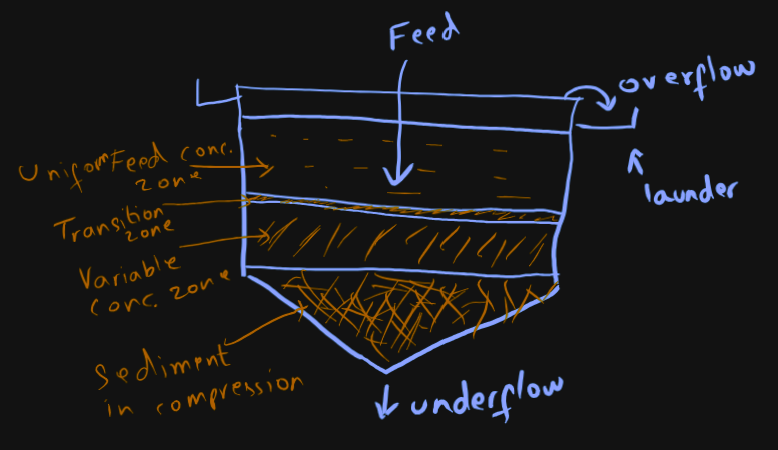 Feed
overflow
launder
Uniform Feed conc.
zone
Transition
zone
Variable
conc. zone
Sediment
in compression
underflow